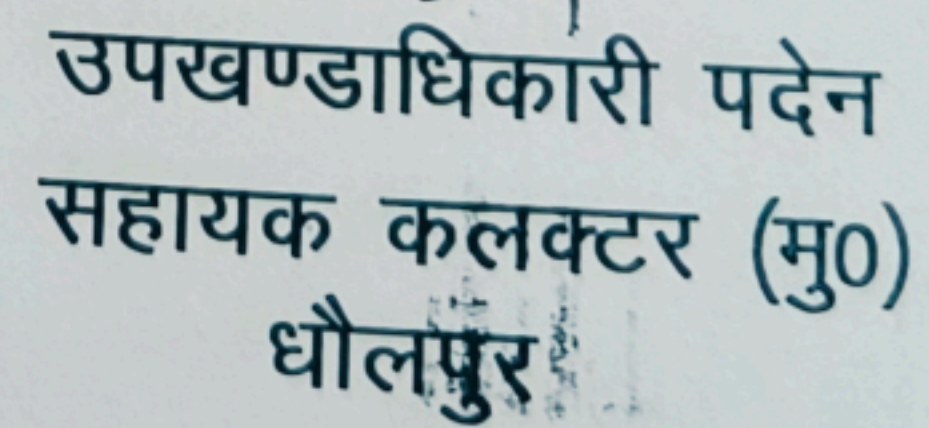 उपखण्डाधिकारी पदेन
सहायक कलक्टर (मु0)
धौलपुर